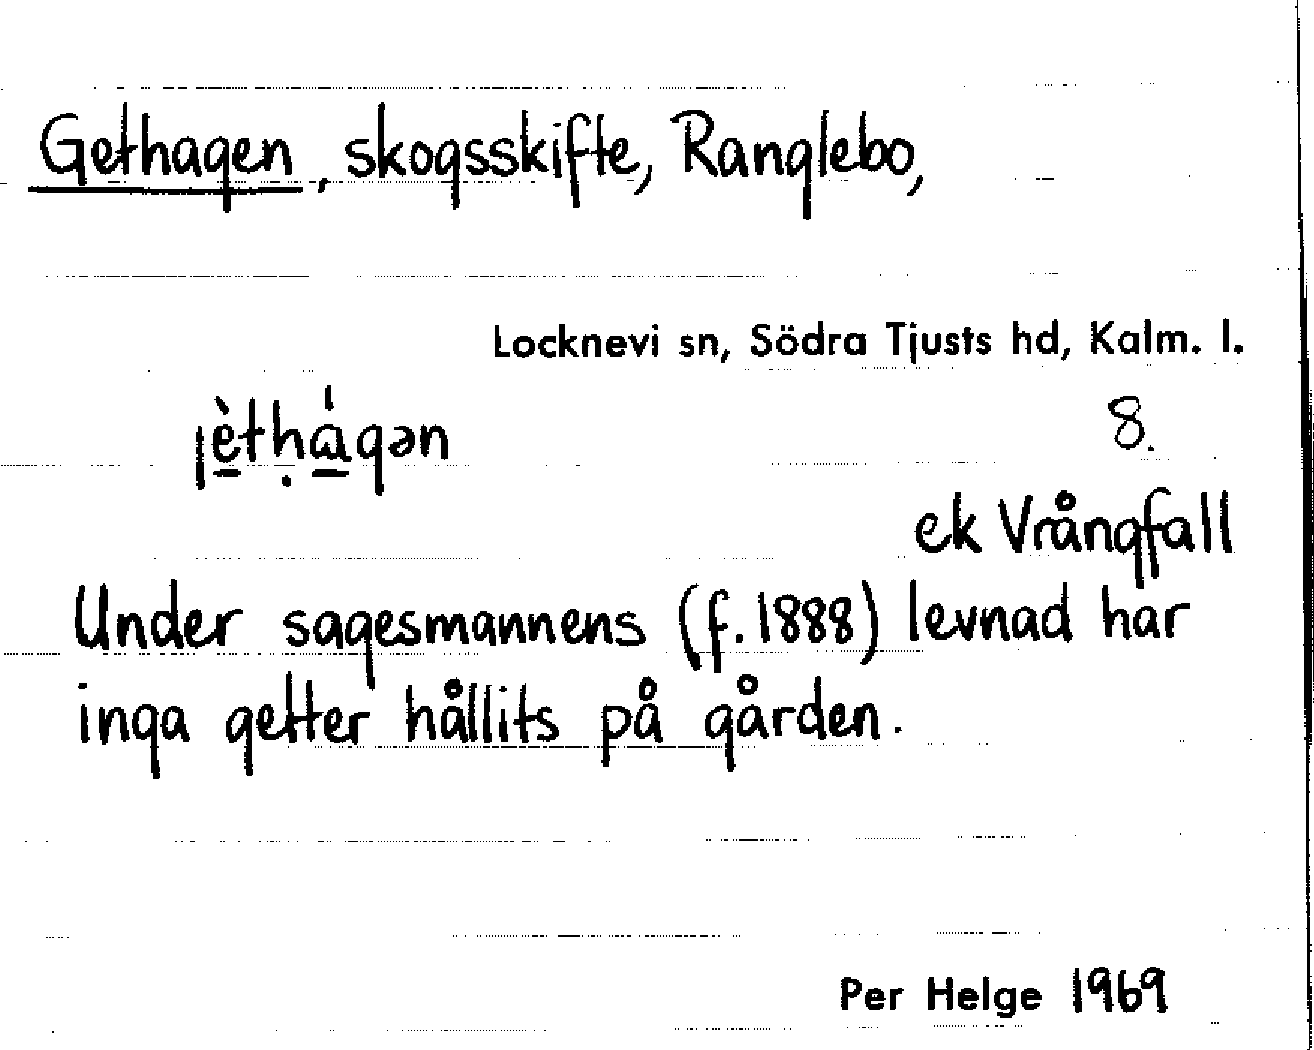 Gethagen, skogsskifte, Ranglebo,
Locknevi sn, Södra Tjusts hd, Kalm. l.
jèt̲hạ́gən 8.
ek Vrångfall
Under sagesmannens (f. 1888) levnad har
inga getter hållits på gården.
Per Helge 1969